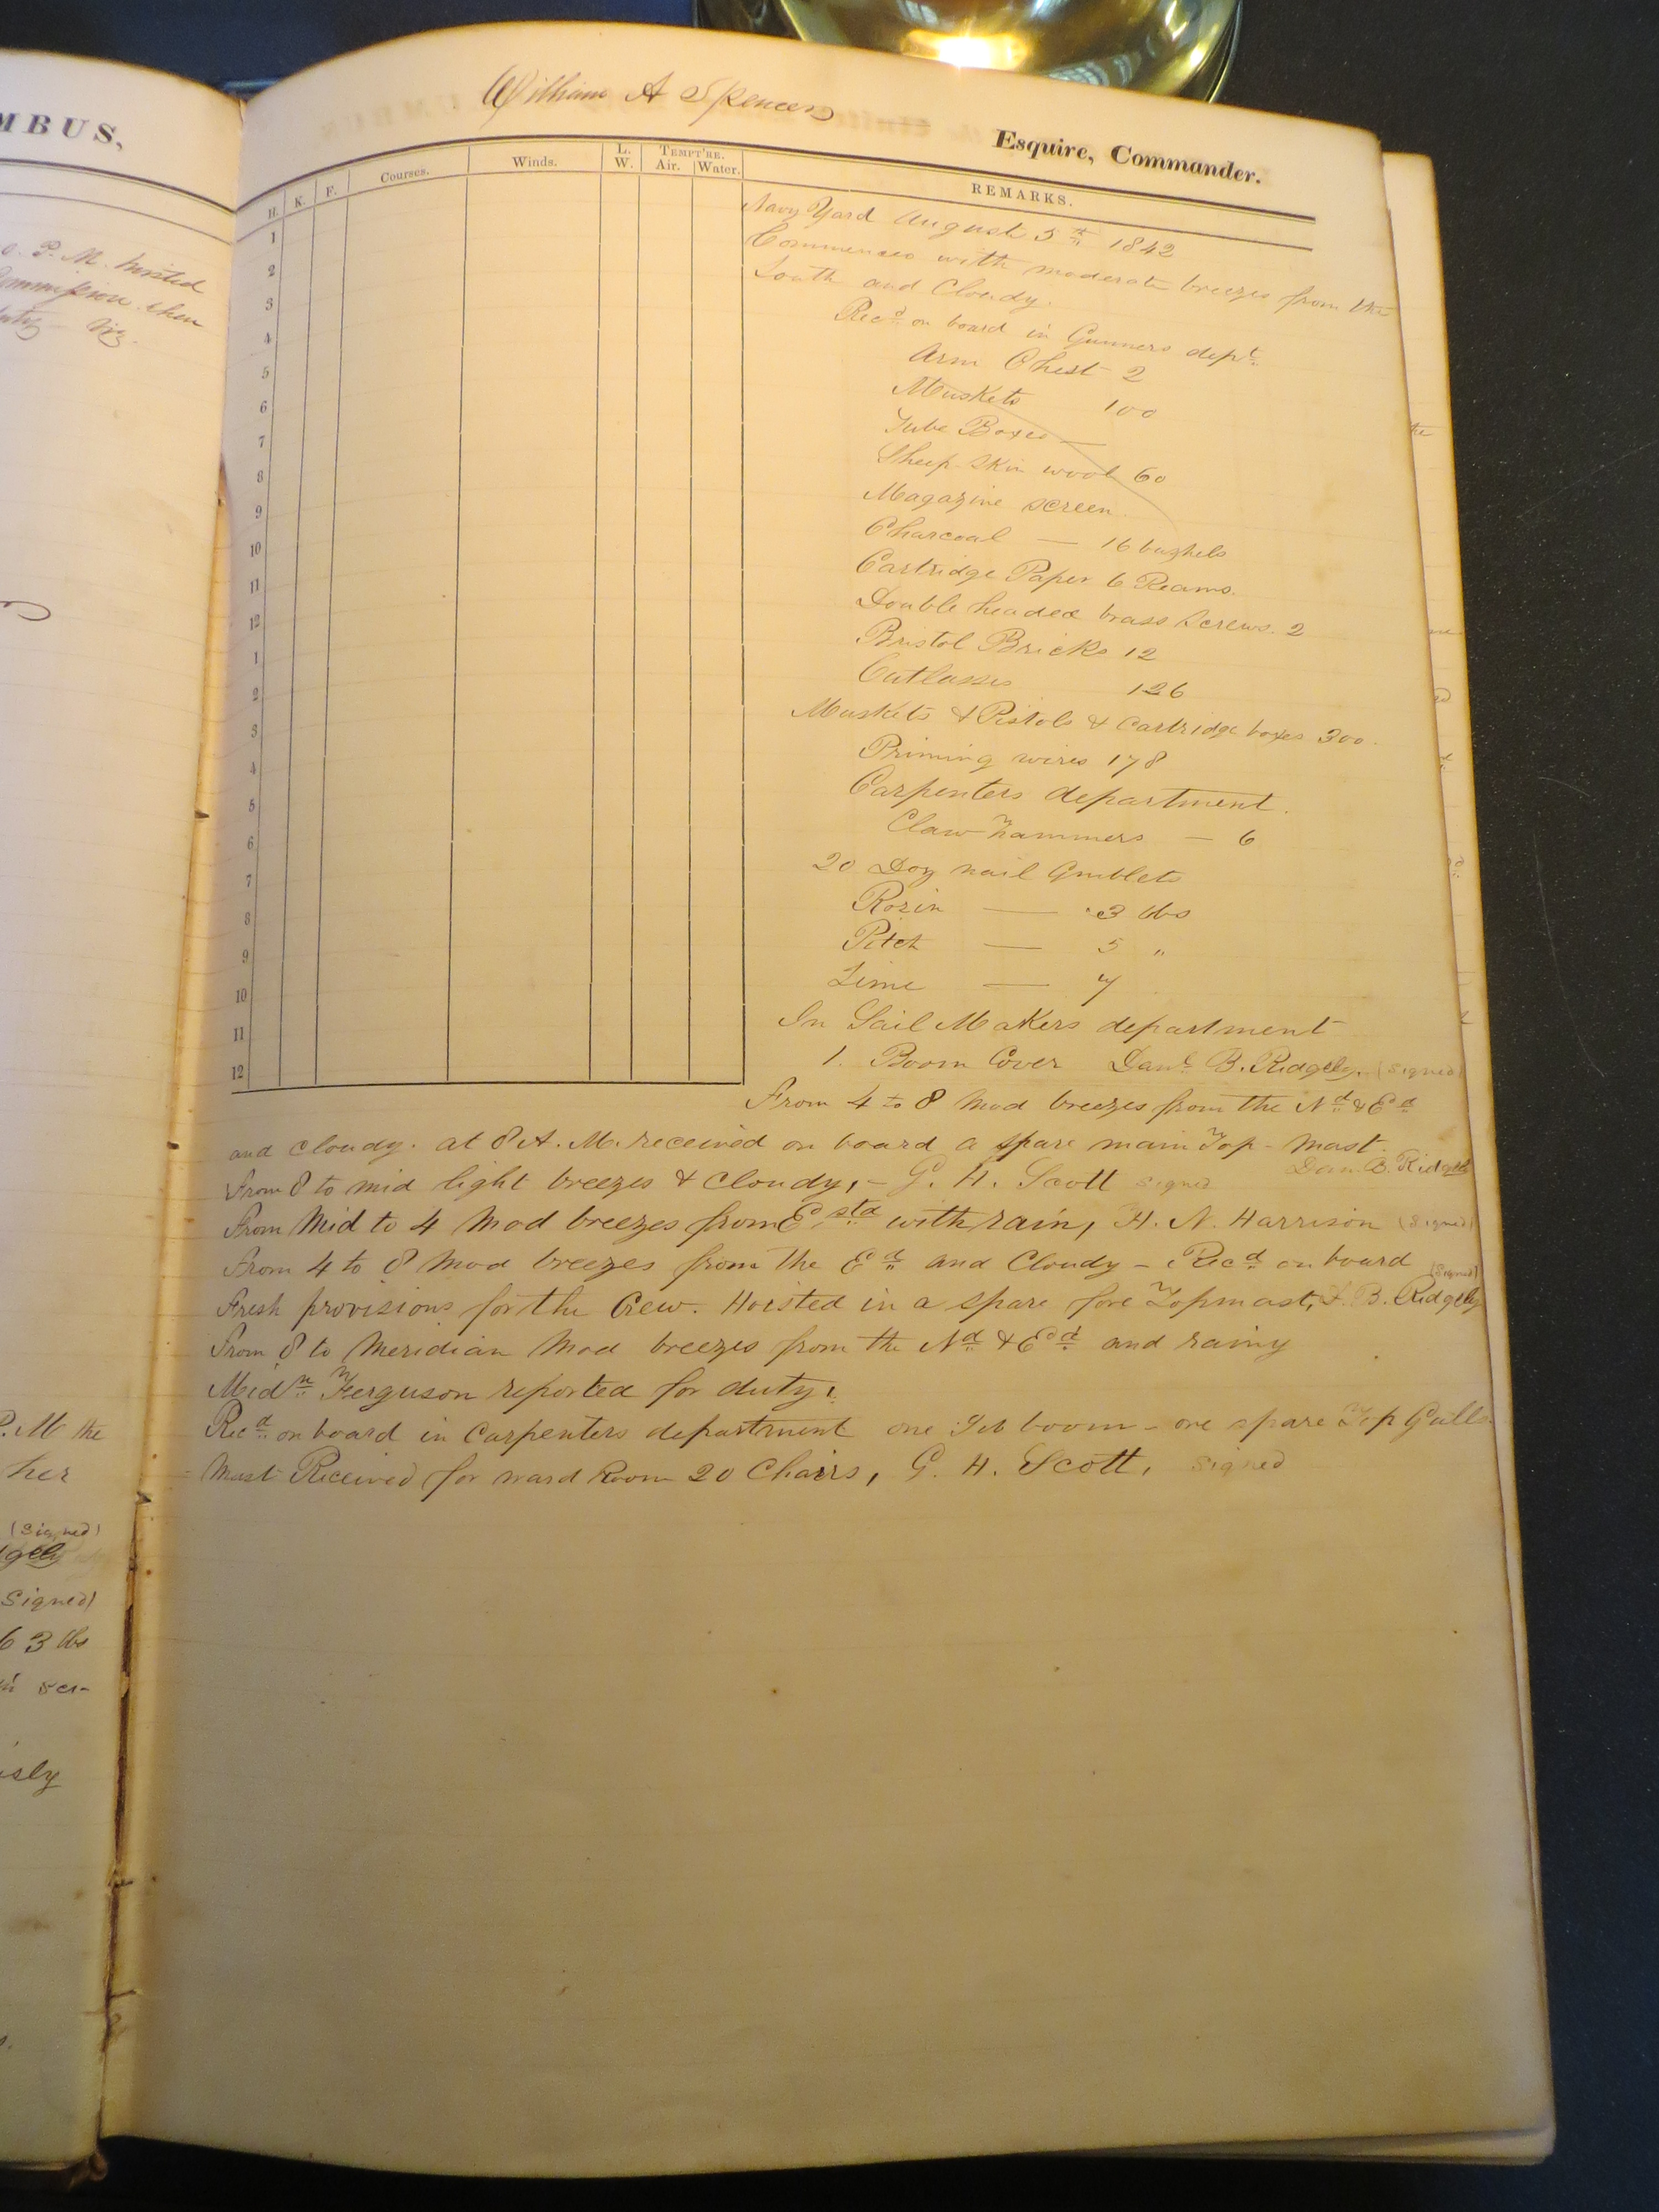 MBUS,
P. M. hoisted
Commission when
duty viz.
P. M the
her
(Signed)
Signed)
63 lbs
William A Spencer
Esquire, Commander.
H. K. F. Courses. Winds. L. W. TEMPT'RE. Air. Water. REMARKS.
1
2
3
4
5
6
7
8
9
10
11
12
1
2
3
4
5
6
7
8
9
10
11
12
Navy Yard August 5th 1842
Commences with moderate breezes from the
South and Cloudy.
Recd on board in Gunners dept
Arm Chest 2
Muskets 100
Tube Boxes —
Sheep Skin wool 60
Magazine Screen
Charcoal — 16 bushels
Cartridge Paper 6 Reams.
Double headed brass Screws. 2
Bristol Bricks 12
Cutlasses 126
Muskets & Pistols & Cartridge boxes 300.
Priming wires 178
Carpenters department.
Claw hammers — 6
20 Dog nail Gimblets
Rozin — 3 lbs
Pitch — 5 "
Lime — 7
In Sail Makers department
1. Boom Cover Danl B. Ridgely. (Signed)
From 4 to 8 Mod breezes from the Nd & Ed
and cloudy. at 8 A. M. received on board a spare main Top-mast.
Dan. B. Ridgely
From 8 to mid light breezes & cloudy, - G. H. Scott signed
From Mid to 4 Mod breezes from Estd with rain, H. N. Harrison (Signed)
From 4 to 8 Mod breezes from the Ed and Cloudy - Recd on board
(Signed)
Fresh provisions for the Crew. Hoisted in a spare fore Topmast, D. B. Ridgely
From 8 to Meridian Mod breezes from the Nd & Ed and rainy
Midn Ferguson reported for duty.
Recd on board in Carpenters department one Jib boom - one spare Top Gall
Mast Received for ward Room 20 Chairs, G. H. Scott, Signed